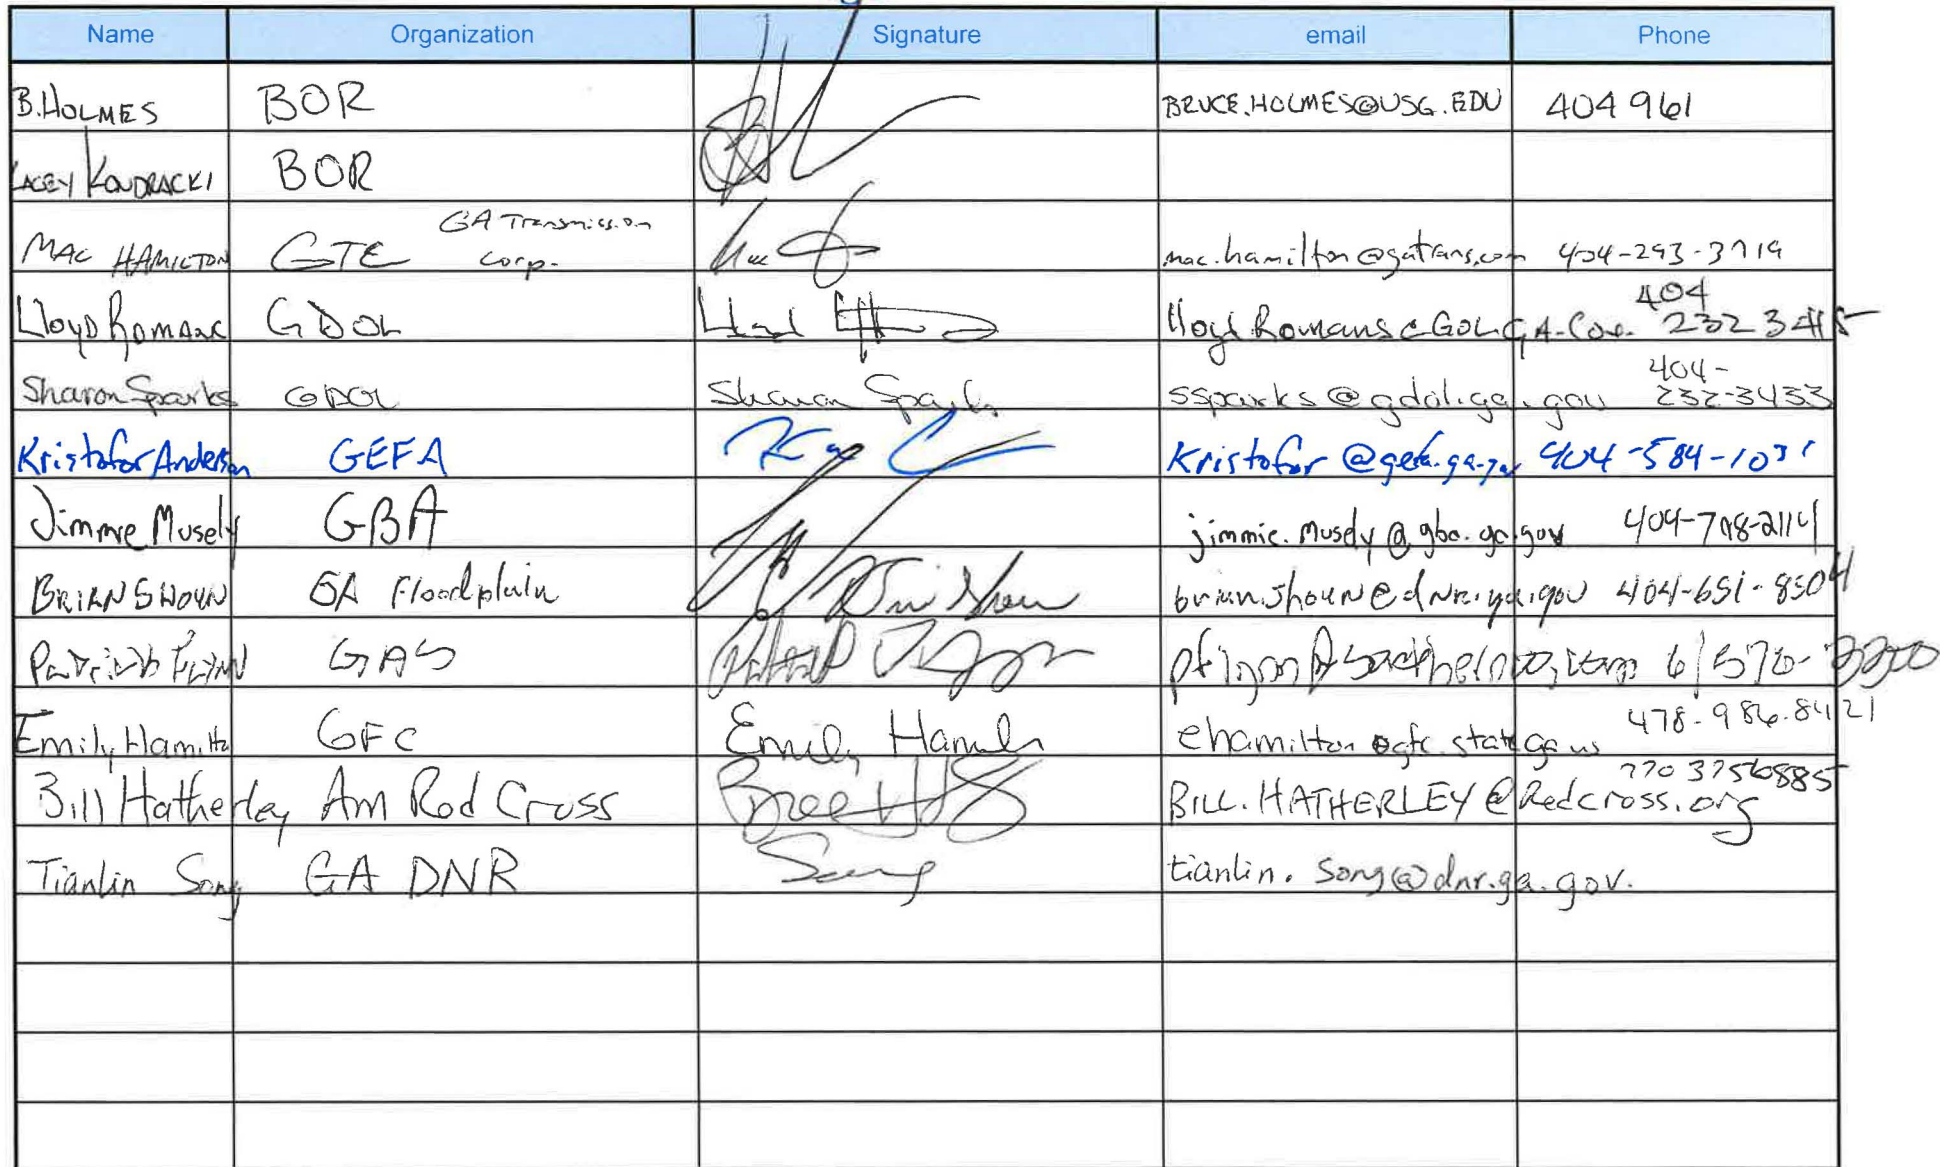 Name Organization Signature email Phone
B. HOLMES BOR BRUCE.HOLMES@USG.EDU 404 961
LACEY KONDRACKI BOR
MAC HAMILTON GTC GA Transmission Corp. mac.hamilton@gatrans.com 404-293-3719
Lloyd Romans GDOL 404 232 3415
Sharon Sparks GDOL Sharon Sparks ssparks@gdol.ga.gov 404-232-3433
Kristofor Anderson GEFA Kristofor@gefa.ga.gov 404-584-1031
Jimmie Musely GBA jimmie.musely@gba.ga.gov
BRIAN SHOUN GA Floodplain brian.shoun@dnr.ga.gov 404-651-8504
GAS
Emily Hamilto GFC Emily Hamilt ehamilton@gfc.state.ga.us 478-986-8421
Bill Hatherley Am Red Cross BILL.HATHERLEY@Redcross.org 770 3756885
Tianlin Song GA DNR Song tianlin.song@dnr.ga.gov.